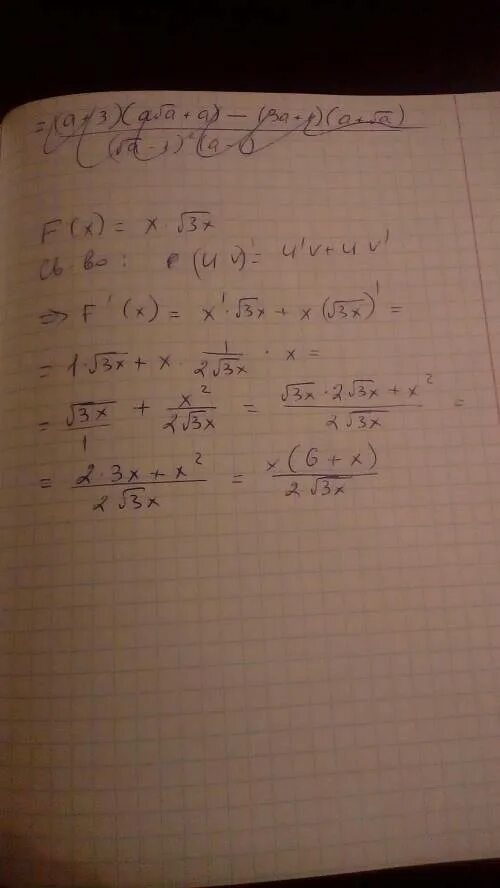 = (a+3)(a√a + a) − (3a+1)(a+√a)
(√a − 1)² (a −
F(x) = x · √3x
Св-во: (UV)' = U'V + UV'
⇒ F'(x) = x' · √3x + x (√3x)' =
= 1·√3x + x · 1/(2√3x) · x =
= √3x/1 + x²/(2√3x) = (√3x · 2√3x + x²)/(2√3x) =
= (2·3x + x²)/(2√3x) = x(6 + x)/(2√3x)